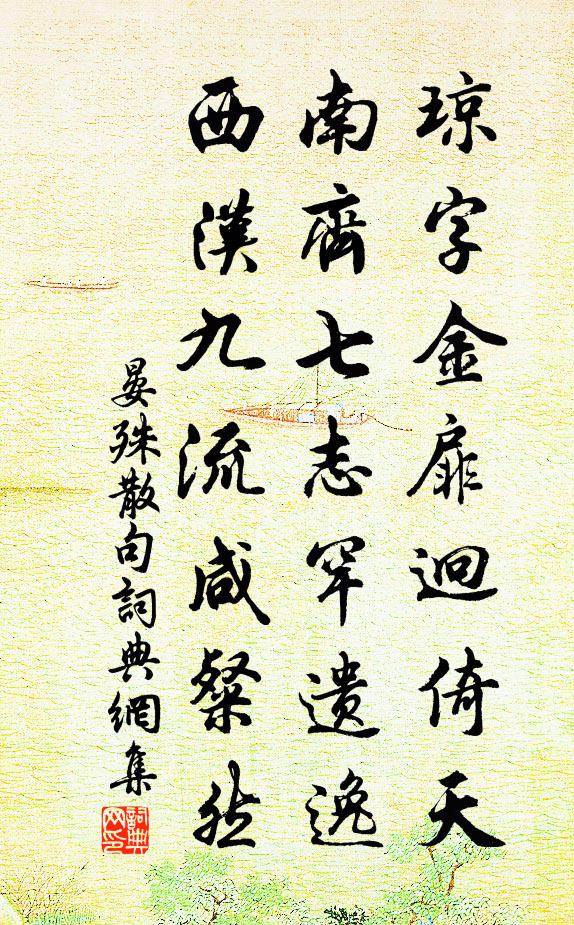 琼字金扉迥倚天
南齊七志罕遺逸
西漢九流咸粲然
晏殊散句詞典網集
詞典網印